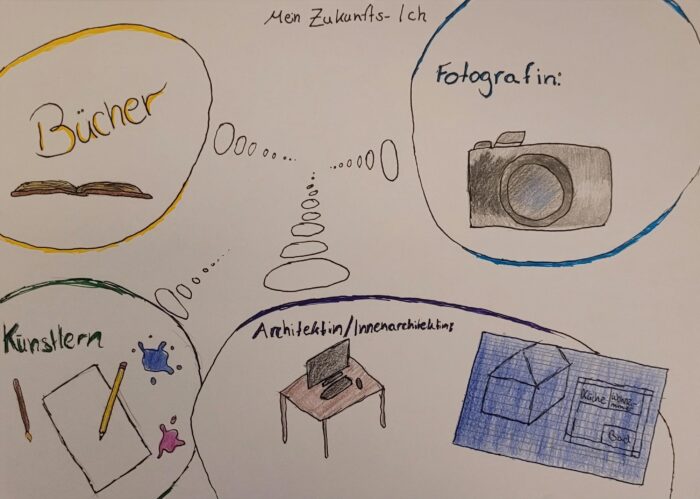 Mein Zukunfts-Ich
Bücher
Fotografin:
Künstlern
Architektin/Innenarchitektin:
Küche
Bad